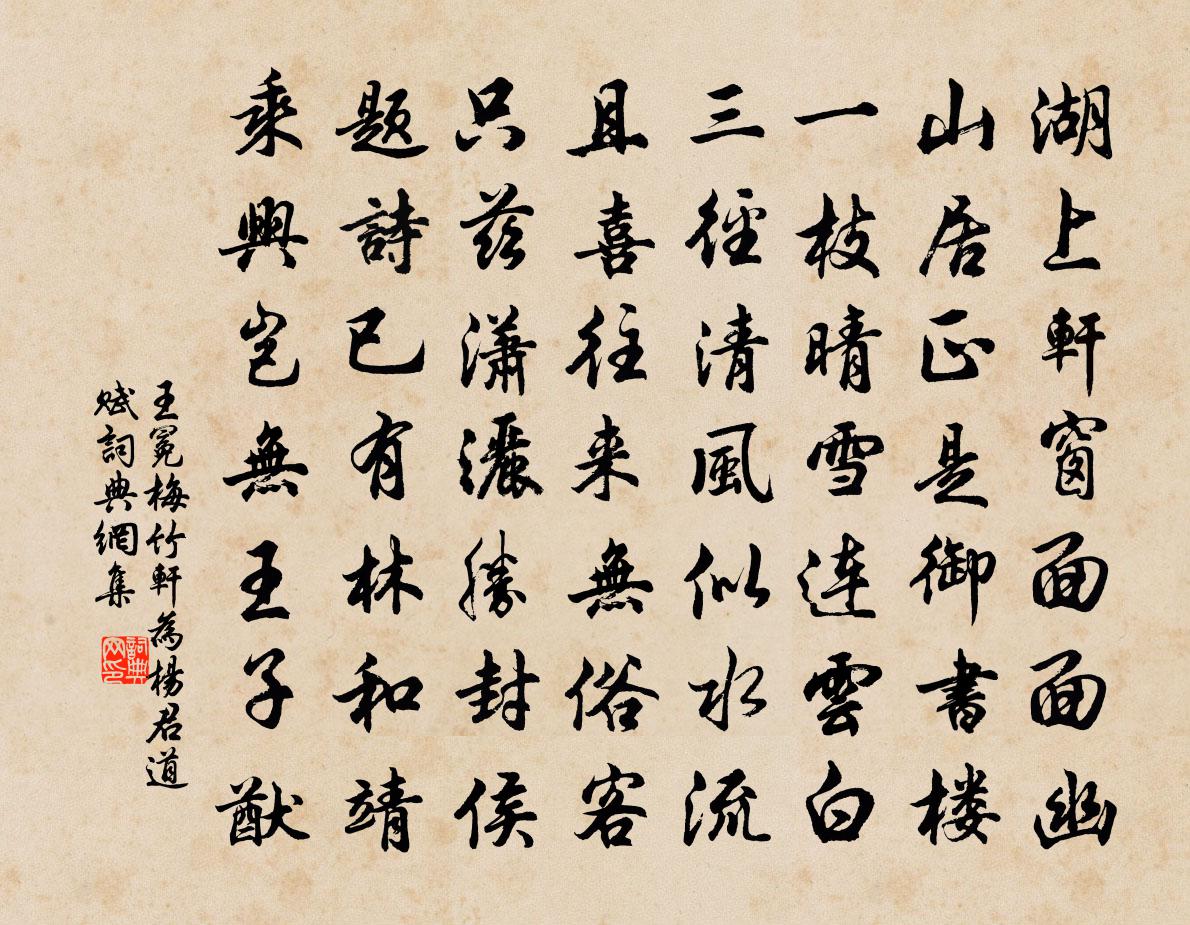 湖上軒窗面面幽
山居正是御書楼
一枝晴雪連雲白
三徑清風似水流
且喜往来無俗客
只茲瀟灑勝封侯
題詩已有林和靖
乘興豈無王子猷
王冕梅竹軒為楊君道
賦詞典網集
詞典网印